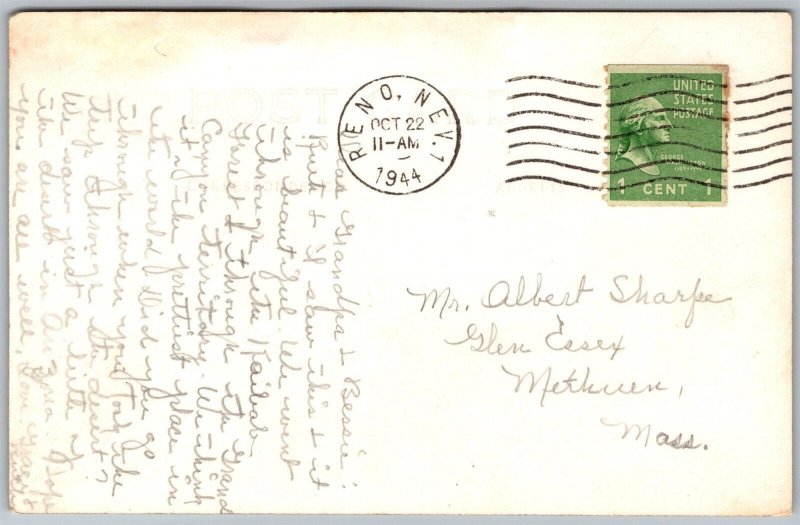 POST CARD
CORRESPONDENCE
ADDRESS
RENO, NEV. 1
OCT 22
11-AM
1944
UNITED
STATES
POSTAGE
GEORGE
WASHINGTON
1 CENT 1
Mr. Albert Sharpe
Glen Essex
Methuen,
Mass.
Dear Grandpa & Bessie:
Ruth & I saw this & it
is beautiful. We went
through the Kaibab
Forest & through the Grand
Canyon territory. We think
it is the prettiest place in
the world. Did you go
through when you took the
trip through the desert?
We saw just a little of
the desert in Arizona. Hope
you are all well, Love